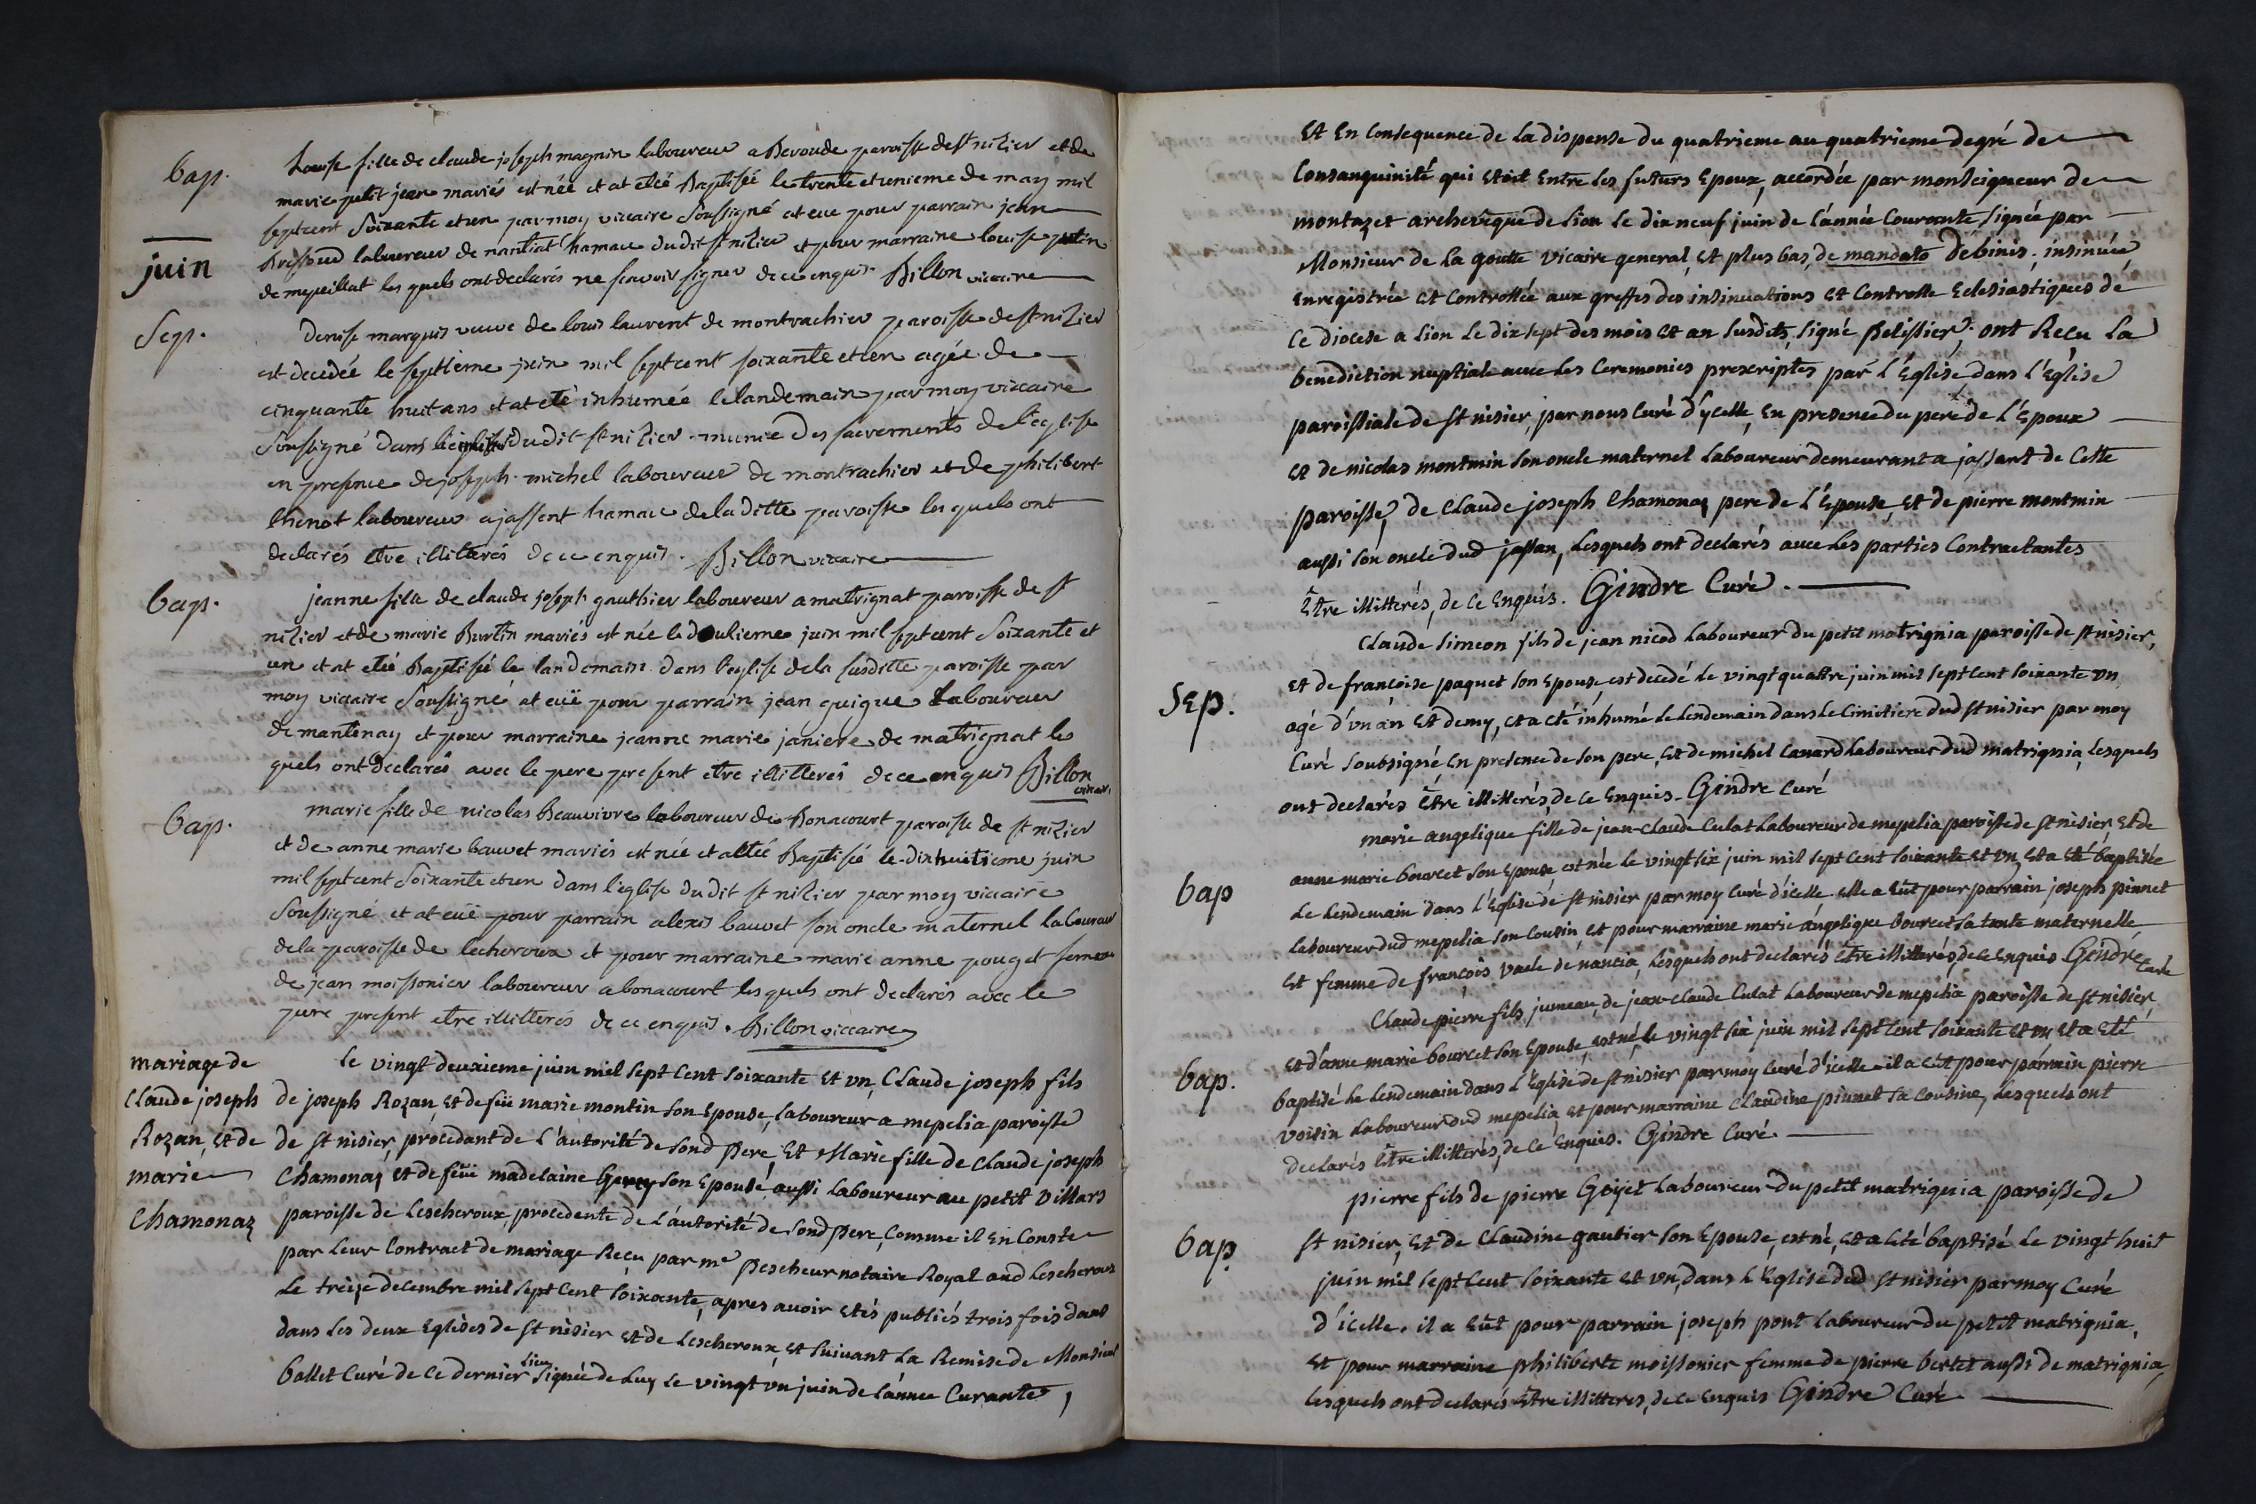 bap.
Louise fille de claude joseph magnin laboureur a Bevoude paroisse de st nizier et de
marie petit jean mariés est née et at etéé Baptisée le trente et unieme de may mil
sept cent Soixante et un par moy viccaire Soussigné at eue pour parrain jean
laboureur de nantiat hamau du dit st nizier et pour marraine louise putin
de mepeillat les quels ont declarés ne scavoir signer de ce enquis. Billon viccaire
juin
Sep.
Denise marquis veuve de louis laurent de montrachier paroisse de st nizier
est decedée le septieme juin mil sept cent soixante et un agée de
cinquante huit ans et at eté inhumée le landemain par moy viccaire
soussigné dans du dit st nizier munie des sacrements de l'eglise
en presence de joseph michel laboureur de montrachier et de philibert
thenot laboureur a jassent hamau de la ditte paroisse les quels ont
declarés etre illiterés de ce enquis. Billon viccaire
bap.
jeanne fille de claude joseph gauthier laboureur a matrignat paroisse de st
nizier et de marie Burtin mariés est née le douzieme juin mil sept cent Soixante et
un et at etéé Baptisée le landemain dans l'eglise de la susditte paroisse par
moy viccaire Soussigné at euë pour parrain jean guigue Laboureur
de mantenay et pour marraine jeanne marie janiere de matrignat les
quels ont declarés avec le pere present etre illitterés de ce enquis Billon
viccair.
bap.
marie fille de nicolas Beauvivre laboureur de Bonacourt paroisse de st nizier
et de anne marie bauvet mariés est née et at etéé Baptisée le dix huitieme juin
mil sept cent Soixante et un dans l'eglise du dit st nizier par moy viccaire
Soussigné et at euë pour parrain alexis bauvet son oncle maternel laboureur
de la paroisse de lecheroux et pour marraine marie anne pouget femme
de jean moissonier laboureur a bonacourt les quels ont declarés avec le
pere present etre illitterés de ce enquis. Billon viccaire
mariage de
Claude joseph
Rozan, et de
marie
Chamonaz
Le vingt deuxieme juin mil sept cent soixante et vn, Claude joseph fils
de joseph Rozan, et de feüe marie montin son Epouse, laboureur a mepelia paroisse
de st nisier, procedant de l'autorité de sond pere, Et Marie fille de Claude joseph
Chamonaz et de feüe madelaine son Epouse, aussi laboureur au petit villars
paroisse de Lescheroux, procedente de l'autorité de sond pere, comme il en conste
par leur contract de mariage Reçu par me Pescheur notaire Royal aud Lescheroux
le treize decembre mil sept cent soixante, apres avoir etés publiés trois fois dans
dans les deux Eglises de st nisier et de Lescheroux, et suivant la Remise de Monsieur
ballet Curé de ce dernier lieu signée de luy le vingt vn juin de l'année Curante,
Et En consequence de la dispense du quatrieme au quatrieme degré de
Consanguinité qui etoit entre les futurs Epoux, accordée par monseigneur de
montazet archevêque de lion le dix neuf juin de l'année Courante, signée par
Monsieur de la goutte vicaire general, et plus bas, de mandato Debinis, insinuée
enregistrée et controllée aux greffes des insinuations et controlle Eclesiastiques de
ce diocese a lion le dix sept des mois et an susdits, signé pelissier; ont Reçu la
benediction nuptiale avec les Ceremonies prescriptes par l'Eglise, dans l'Eglise
paroissiale de st nisier, par nous Curé d'ycelle, en presence du pere de l'Epoux
et de nicolas montmin son oncle maternel laboureur demeurant a jassant de cette
paroisse, de Claude joseph Chamonaz pere de l'Epouse, et de pierre montmin
aussi son oncle dud jassan, Lesquels ont declarés avec les parties contractantes
Être illitterés, de ce Enquis. Gindre Curé.
Sep.
Claude simeon fils de jean nicod laboureur du petit matrignia paroisse de st nisier,
et de francoise paquet son Epouse, est decedé le vingt quattre juin mil sept cent soixante vn
agé d'vn an et demy, et a eté inhumé le lendemain dans le cimetiere dud st nisier par moy
Curé soubsigné en presence de son pere, et de michel Canard laboureur dud matrignia, Lesquels
ont declarés Être illitterés, de ce Enquis. Gindre Curé
bap
marie angelique fille de jean-claude Culat laboureur de mepelia paroisse de st nisier, et de
anne marie bourcet son Epouse est née le vingt six juin mil sept cent soixante et vn, et a eté baptisée
le lendemain dans l'Eglise de st nisier par moy Curé d'icelle elle a eüt pour parrain joseph pinnet
laboureur dud mepelia son Cousin, et pour marraine marie angelique bourcet sa tante maternelle
et femme de françois vacle de nancia, Lesquels ont declarés Être illitterés, de ce enquis Gindre
Curé
bap.
Claude pierre fils jumeau, de jean-claude Culat laboureur de mepelia paroisse de st nisier,
et d'anne marie bourcet son Epouse, est né le vingt six juin mil sept cent soixante et vn et a eté
baptisé le lendemain dans l'Eglise de st nisier par moy Curé d'icelle il a eüt pour parrain pierre
voisin laboureur dud mepelia, et pour marraine Claudine pinnet sa cousine, Lesquels ont
declarés Être illitterés, de ce Enquis. Gindre Curé
bap.
pierre fils de pierre Goyet laboureur du petit matrignia paroisse de
st nisier, Et de Claudine gautier son Epouse, est né, et a eté baptisé le vingt huit
juin mil sept cent soixante et vn, dans l'Eglise dud st nisier par moy Curé
d'icelle. il a eüt pour parrain joseph pont laboureur du petit matrignia,
Et pour marraine philiberte moissonier femme de pierre bertet aussi de matrignia,
Lesquels ont declarés Être illitterés, de ce enquis Gindre Curé